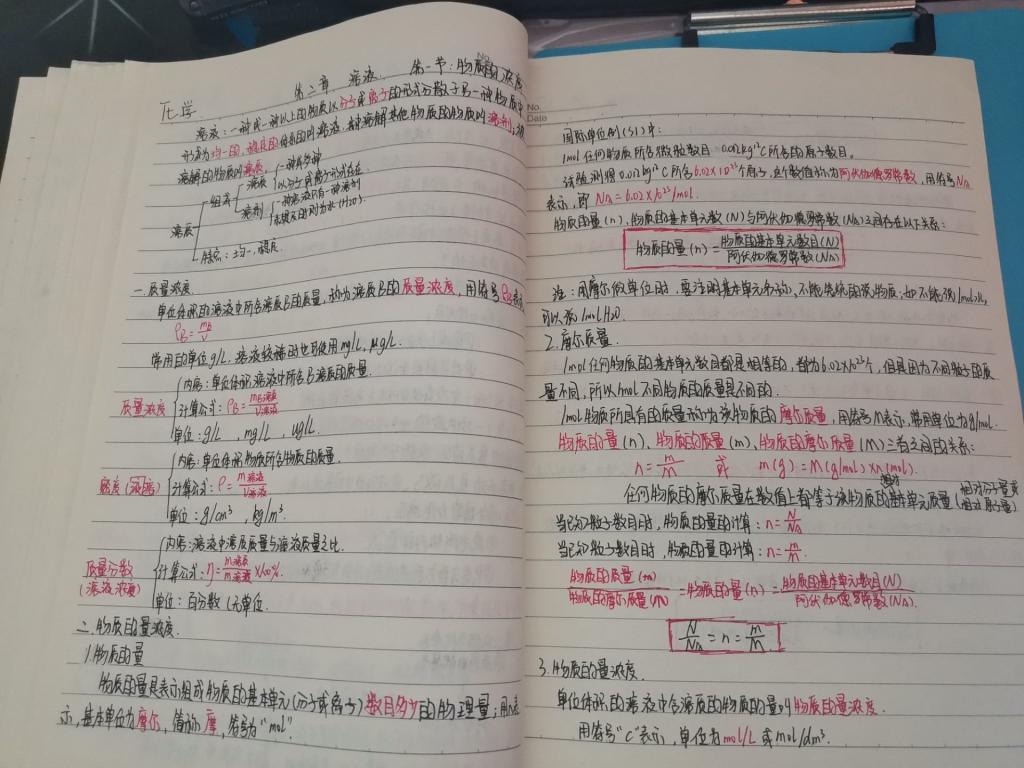 化学
第二章 溶液 第一节:物质的浓度
溶液:一种或一种以上的物质以分子或离子的形式分散于另一种物质中
形成均一的、稳定的体系叫溶液。其中溶解其他物质的物质叫溶剂;被
溶解的物质叫溶质。
溶质
一种或多种
以分子或离子形式存在
组成
溶剂
一种溶液只有一种溶剂
未提及的则为水(H2O).
溶质
特点:均一,稳定.
一.质量浓度
单位体积的溶液中所含溶质B的质量,称为溶质B的质量浓度,用符号ρB表示
ρB=mB/V
常用的单位g/L.溶液较稀时也可使用mg/L、μg/L.
质量浓度
内容:单位体积溶液中所含B溶质的质量.
计算公式:ρB=mB溶质/V溶液
单位:g/L ,mg/L ,ug/L.
密度(液密)
内容:单位体积物质所含物质的质量.
计算公式:ρ=m溶液/V溶液
单位:g/cm³ ,kg/m³.
质量分数
(溶液浓度)
内容:溶液中溶质质量与溶液质量之比.
计算公式:η=m溶质/m溶液×100%.
单位:百分数(无单位.
二.物质的量浓度.
1.物质的量
物质的量是表示组成物质的基本单元(分子或离子)数目多少的物理量;用n表
示,基本单位为摩尔,简称摩,符号为"mol".
No.
Date
国际单位制(SI)中:
1mol任何物质所含微粒数目 0.012kg¹²C所含的原子数目.
试验测得0.012kg¹²C所含6.02×10²³个原子,这个数值称为阿伏伽德罗常数,用符号NA
表示,即NA=6.02×10²³/mol.
物质的量(n),物质的基本单元数(N)与阿伏伽德罗常数(NA)之间存在以下关系:
物质的量(n)=物质的基本单元数目(N)/阿伏伽德罗常数(NA)
注:用摩尔做单位时,要注明基本单元名称,不能笼统的说物质,如不能说1mol水,
可以说1molH2O.
2.摩尔质量.
1mol任何物质的基本单元数目都是相等的,都为6.02×10²³个,但是因为不同粒子的质
量不同,所以1mol不同物质的质量是不同的.
1mol物质所具有的质量称为该物质的摩尔质量,用符号M表示,常用单位为g/mol.
物质的量(n)、物质的质量(m)、物质的摩尔质量(M)三者之间的关系:
n=m/M 或 m(g)=M(g/mol)×n(mol).
任何物质的摩尔质量在数值上都等于该物质的基本单元质量(相对分子量或
相对原子量)
当已知粒子数目时,物质的量的计算:n=N/NA
当已知粒子数目时,物质的量的计算:n=m/M.
物质的质量(m)/物质的摩尔质量(M)=物质的量(n)=物质的基本单元数目(N)/阿伏伽德罗常数(NA).
N/NA=n=m/M.
3.物质的量浓度.
单位体积的溶液中含溶质的物质的量叫物质的量浓度.
用符号"C"表示,单位为mol/L或mol/dm³.